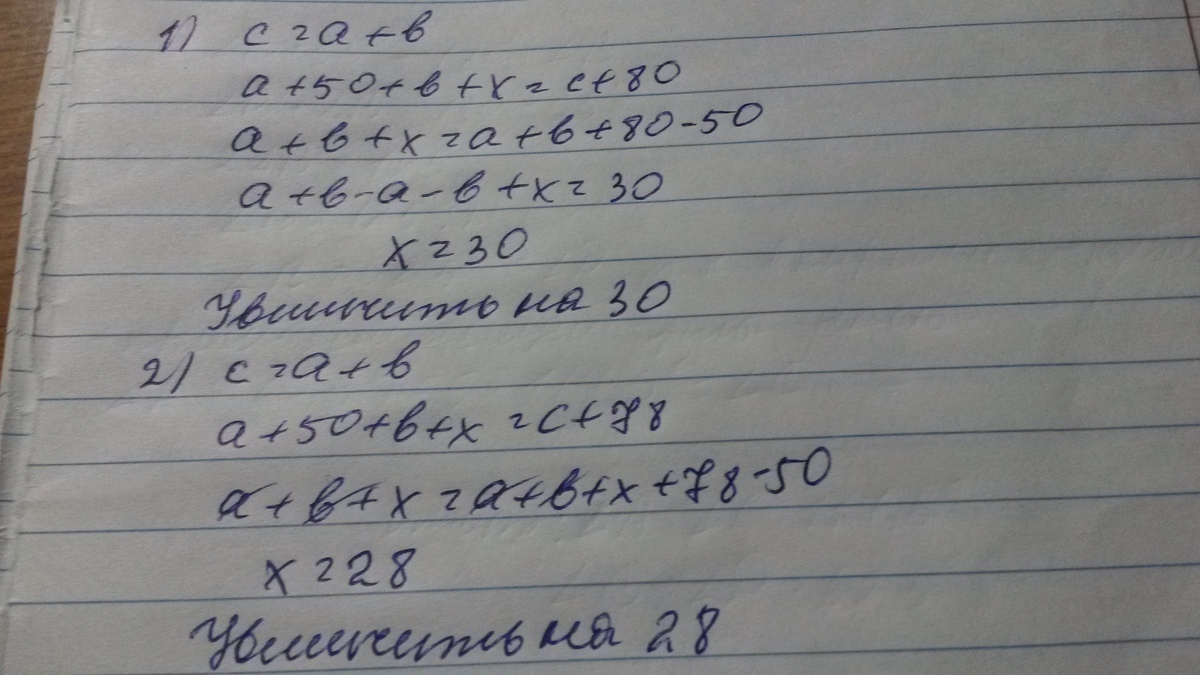 1) c = a + b
a + 50 + b + x = c + 80
a + b + x = a + b + 80 - 50
a + b - a - b + x = 30
x = 30
Увеличить на 30
2) c = a + b
a + 50 + b + x = c + 78
a + b + x = a + b + x + 78 - 50
x = 28
Увеличить на 28